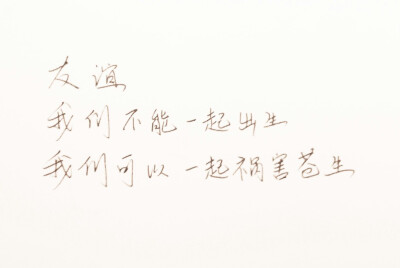 友谊
我们不能一起出生
我们可以一起祸害苍生